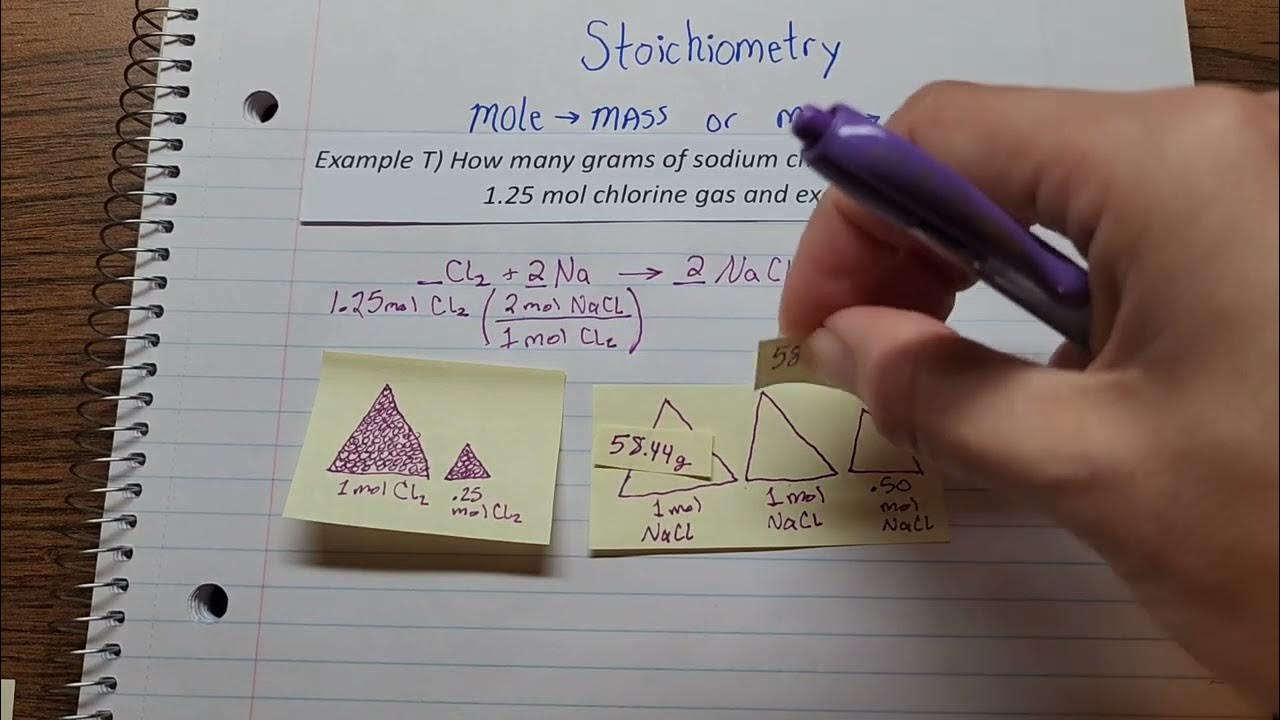 Stoichiometry
mole → MASS or
Example T) How many grams of sodium
1.25 mol chlorine gas and
_Cl₂ + 2 Na → 2 NaCl
1.25mol Cl₂ (2mol NaCl
1 mol Cl₂)
58.44g
1 mol Cl₂
.25
mol Cl₂
1 mol
NaCl
1 mol
NaCl
.50
mol
NaCl